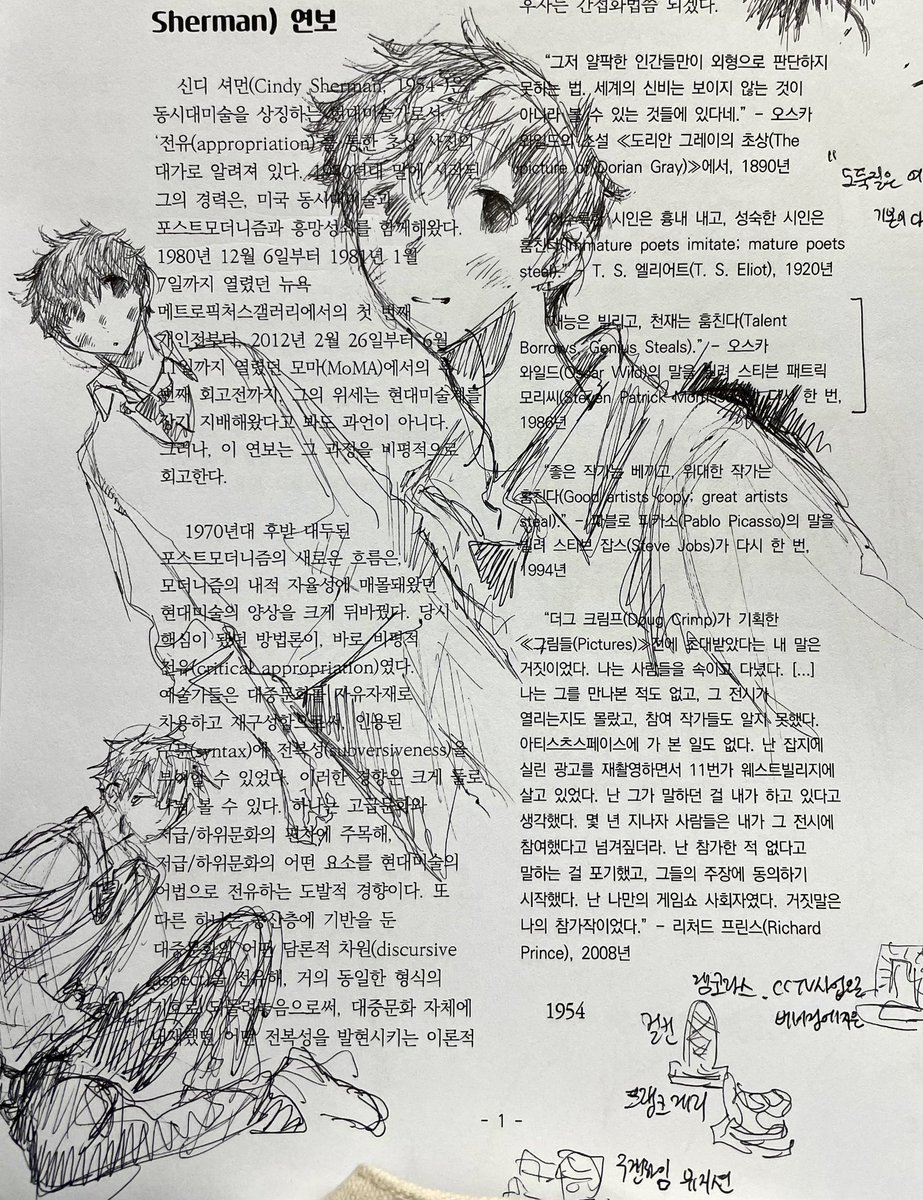 Sherman) 연보
신디 셔먼(Cindy Sherman, 1954-)은
동시대미술을 상징하는 현대미술가로서,
‘전유(appropriation)’를 통한 초상 사진의
대가로 알려져 있다. 1970년대 말에 시작된
그의 경력은, 미국 동시대미술과
포스트모더니즘과 흥망성쇠를 함께해왔다.
1980년 12월 6일부터 1981년 1월
7일까지 열렸던 뉴욕
메트로픽처스갤러리에서의 첫 번째
개인전부터, 2012년 2월 26일부터 6월
11일까지 열렸던 모마(MoMA)에서의
번째 회고전까지, 그의 위세는 현대미술계를
장기 지배해왔다고 봐도 과언이 아니다.
그러나, 이 연보는 그 과정을 비평적으로
회고한다.
1970년대 후반 대두된
포스트모더니즘의 새로운 흐름은,
모더니즘의 내적 자율성에 매몰돼왔던
현대미술의 양상을 크게 뒤바꿨다. 당시
핵심이 됐던 방법론이, 바로 비평적
전유(critical appropriation)였다.
예술가들은 대중문화를 자유자재로
차용하고 재구성함으로써, 인용된
구문(syntax)에 전복성(subversiveness)을
부여할 수 있었다. 이러한 경향은 크게 둘로
나눠 볼 수 있다. 하나는 고급문화와
저급/하위문화의 편차에 주목해,
저급/하위문화의 어떤 요소를 현대미술의
어법으로 전유하는 도발적 경향이다. 또
다른 하나는 중산층에 기반을 둔
대중문화의 어떤 담론적 차원(discursive
aspect)을 전유해, 거의 동일한 형식의
기호로 되돌려놓음으로써, 대중문화 자체에
내재했던 어떤 전복성을 발현시키는 이론적
우사는 간접화법쯤 되겠다.
“그저 얄팍한 인간들만이 외형으로 판단하지
못하는 법. 세계의 신비는 보이지 않는 것이
아니라 볼 수 있는 것들에 있다네.” - 오스카
와일드의 소설 ≪도리안 그레이의 초상(The
picture of Dorian Gray)≫에서, 1890년
“미숙한 시인은 흉내 내고, 성숙한 시인은
훔친다(Immature poets imitate; mature poets
steal).” - T. S. 엘리어트(T. S. Eliot), 1920년
“재능은 빌리고, 천재는 훔친다(Talent
Borrows, Genius Steals).” - 오스카
와일드(Oscar Wild)의 말을 빌려 스티븐 패트릭
모리씨(Steven Patrick Morrissey)가 다시 한 번,
1986년
“좋은 작가는 베끼고, 위대한 작가는
훔친다(Good artists copy; great artists
steal).” - 파블로 피카소(Pablo Picasso)의 말을
빌려 스티브 잡스(Steve Jobs)가 다시 한 번,
1994년
“더그 크림프(Doug Crimp)가 기획한
≪그림들(Pictures)≫전에 초대받았다는 내 말은
거짓이었다. 나는 사람들을 속이고 다녔다. [...]
나는 그를 만나본 적도 없고, 그 전시가
열리는지도 몰랐고, 참여 작가들도 알지 못했다.
아티스츠스페이스에 가 본 일도 없다. 난 잡지에
실린 광고를 재촬영하면서 11번가 웨스트빌리지에
살고 있었다. 난 그가 말하던 걸 내가 하고 있다고
생각했다. 몇 년 지나자 사람들은 내가 그 전시에
참여했다고 넘겨짚더라. 난 참가한 적 없다고
말하는 걸 포기했고, 그들의 주장에 동의하기
시작했다. 난 나만의 게임쇼 사회자였다. 거짓말은
나의 참가작이었다.” - 리처드 프린스(Richard
Prince), 2008년
1954
" 도둑질은
기본의
렘코라스. CCTV사업으로
걸킨
프랭크 게리
구겐하임 뮤지엄
- 1 -